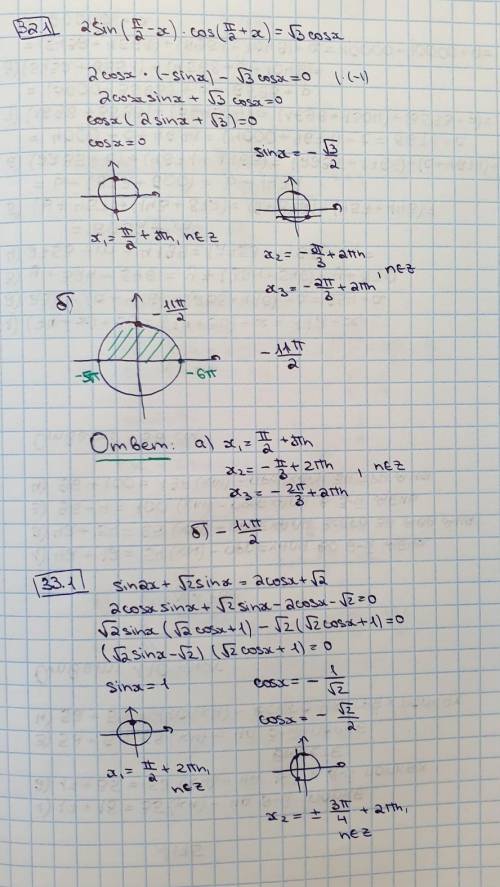 32.1 2sin(π/2 - x) · cos(π/2 + x) = √3 cosx
2cosx · (-sinx) - √3 cosx = 0 |·(-1)
2cosx sinx + √3 cosx = 0
cosx(2sinx + √3) = 0
cosx = 0
sinx = - √3/2
x₁ = π/2 + πn, n∈Z
x₂ = - π/3 + 2πn
x₃ = - 2π/3 + 2πn , n∈Z
б)
- 11π/2
-5π
-6π
- 11π/2
Ответ: а) x₁ = π/2 + πn
x₂ = - π/3 + 2πn , n∈Z
x₃ = - 2π/3 + 2πn
б) - 11π/2
33.1 sin2x + √2 sinx = 2cosx + √2
2cosx sinx + √2 sinx - 2cosx - √2 = 0
√2 sinx (√2 cosx + 1) - √2 (√2 cosx + 1) = 0
(√2 sinx - √2) (√2 cosx + 1) = 0
sinx = 1
cosx = - 1/√2
cosx = - √2/2
x₁ = π/2 + 2πn,
n∈Z
x₂ = ± 3π/4 + 2πn,
n∈Z